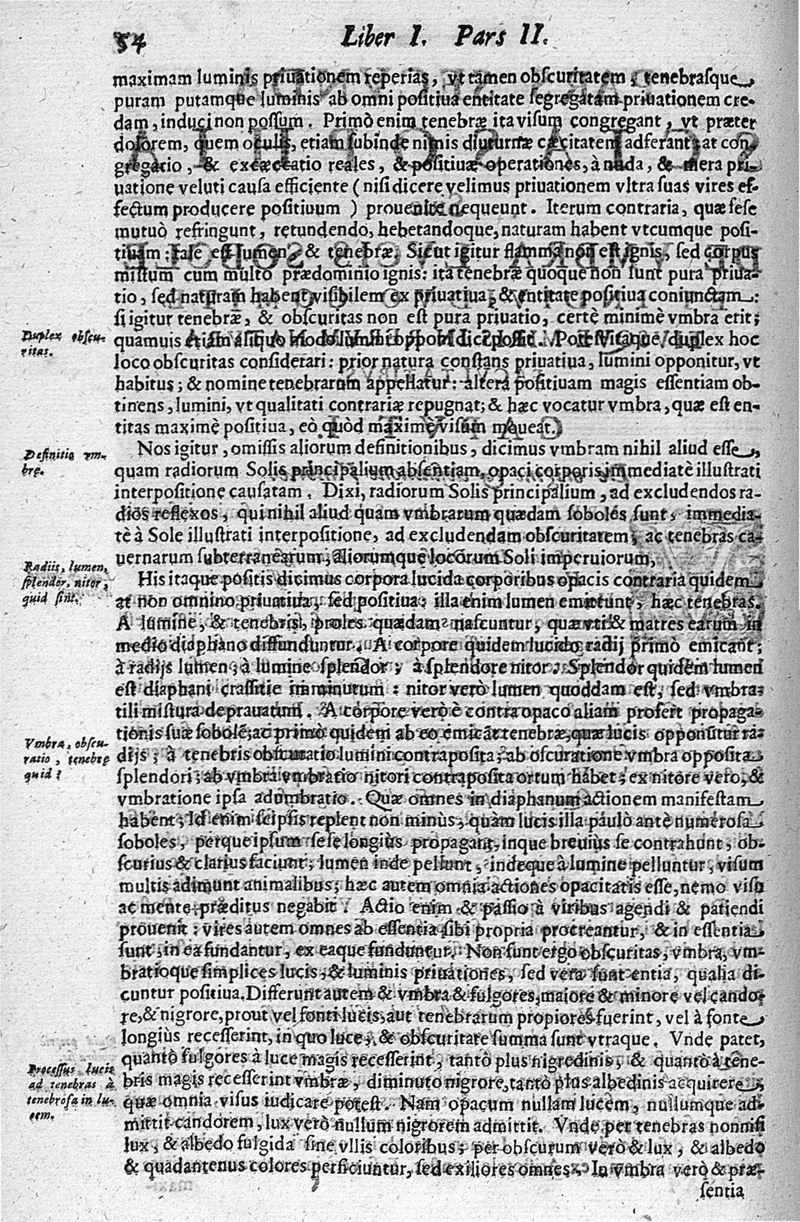 54
Liber I. Pars II.
maximam luminis priuationem reperias, vt tamen obscuritatem, tenebrasque
puram putamque luminis ab omni positiua entitate segregatam priuationem cre-
dam, induci non possum. Primò enim tenebræ ita visum congregant, vt præter
dolorem, quem oculis, etiam subinde nimis diuturnæ cæcitatem adferant: at con
gregatio, & excæcatio reales, & positiuæ operationes, à nuda, & mera pri-
uatione veluti causa efficiente (nisi dicere velimus priuationem vltra suas vires ef-
fectum producere positiuum) prouenire nequeunt. Iterum contraria, quæ sese
mutuò refringunt, retundendo, hebetandoque, naturam habent vtcumque posi-
tiuam: tale est lumen, & tenebræ. Sicut igitur flamma non est ignis, sed corpus
mistum cum multo prædominio ignis: ita tenebræ quoque non sunt pura priua-
tio, sed naturam habent visibilem ex priuatiua, & entitate positiua coniunctam:
si igitur tenebræ, & obscuritas non est pura priuatio, certè minimè vmbra erit;
quamuis etiam aliquo modo lumini opponi dici possit. Potest itaque, duplex hoc
loco obscuritas considerari: prior natura constans priuatiua, lumini opponitur, vt
habitus; & nomine tenebrarum appellatur: altera positiuam magis essentiam ob-
tinens, lumini, vt qualitati contrariæ repugnat; & hæc vocatur vmbra, quæ est en-
titas maximè positiua, eò quòd maximè visum moueat.
Duplex obscu-
ritas.
Nos igitur, omissis aliorum definitionibus, dicimus vmbram nihil aliud esse,
quam radiorum Solis principalium absentiam, opaci corporis immediatè illustrati
interpositione causatam. Dixi, radiorum Solis principalium, ad excludendos ra-
dios reflexos, qui nihil aliud quam vmbrarum quædam soboles sunt, immedia-
tè à Sole illustrati interpositione, ad excludendam obscuritatem, ac tenebras ca-
uernarum subterranearum, aliorumque locorum Soli imperuiorum,
Definitio vm-
bræ.
His itaque positis dicimus corpora lucida corporibus opacis contraria quidem
at non omnino priuatiua, sed positiua: illa enim lumen emittunt, hæc tenebras.
A lumine, & tenebris, proles quædam nascuntur, quæ vti & matres earum in
medio diaphano diffunduntur. A corpore quidem lucido radij primò emicant;
à radijs lumen; à lumine splendor; à splendore nitor. Splendor quidem lumen
est diaphani crassitie imminutum: nitor verò lumen quoddam est, sed vmbra-
tili mistura deprauatum. A corpore verò è contra opaco aliam profert propaga-
tionis suæ sobolé; ac primò quidem ab eo emicāt tenebræ, quæ lucis opponitur ra-
dijs; à tenebris obscuratio lumini contraposita; ab obscuratione vmbra opposita
splendori; ab vmbra vmbratio nitori contraposita ortum habet; ex nitore vero, &
vmbratione ipsa adumbratio. Quæ omnes in diaphanum actionem manifestam
habent; Id enim seipsis replent non minùs, quàm lucis illa paulò antè numerosa
soboles, perque ipsum sese longiùs propagant, inque breuiùs se contrahunt; ob-
scurius & clarius faciunt; lumen inde pellunt, indeque à lumine pelluntur, visum
multis adimunt animalibus; hæc autem omnia actiones opacitatis esse, nemo visu
ac mente præditus negabit. Actio enim & passio à viribus agendi & patiendi
prouenit: vires autem omnes ab essentia sibi propria procreantur, & in essentia
sunt, in ea fundantur, ex eaque funduntur. Non sunt ergo obscuritas, vmbra, vm-
bratioque simplices lucis, & luminis priuationes, sed vera sunt entia, qualia di-
cuntur positiua. Differunt autem & vmbra & fulgores, maiore & minore vel cando-
re, & nigrore, prout vel fonti lucis, aut tenebrarum propiores fuerint, vel à fonte
longiùs recesserint, in quo luce, & obscuritate summa sunt vtraque. Vnde patet,
quantò fulgores à luce magis recesserint, tantò plus nigredinis, & quantò à tene-
bris magis recesserint vmbræ, diminuto nigrore, tantò plus albedinis acquirere,
quæ omnia visus iudicare potest. Nam opacum nullam lucem, nullumque ad-
mittit candorem, lux verò nullum nigrorem admittit. Vnde per tenebras nonnisi
lux, & albedo fulgida sine vllis coloribus; per obscurum verò & lux, & albedo
& quadantenus colores perficiuntur, sed exiliores omnes. In vmbra verò & præ-
sentia
Radiis, lumen,
splendor, nitor,
quid sint.
Vmbra, obscu-
ratio, tenebrę
quid?
Processus lucis
ad tenebras à
tenebrosa in lu-
cem.